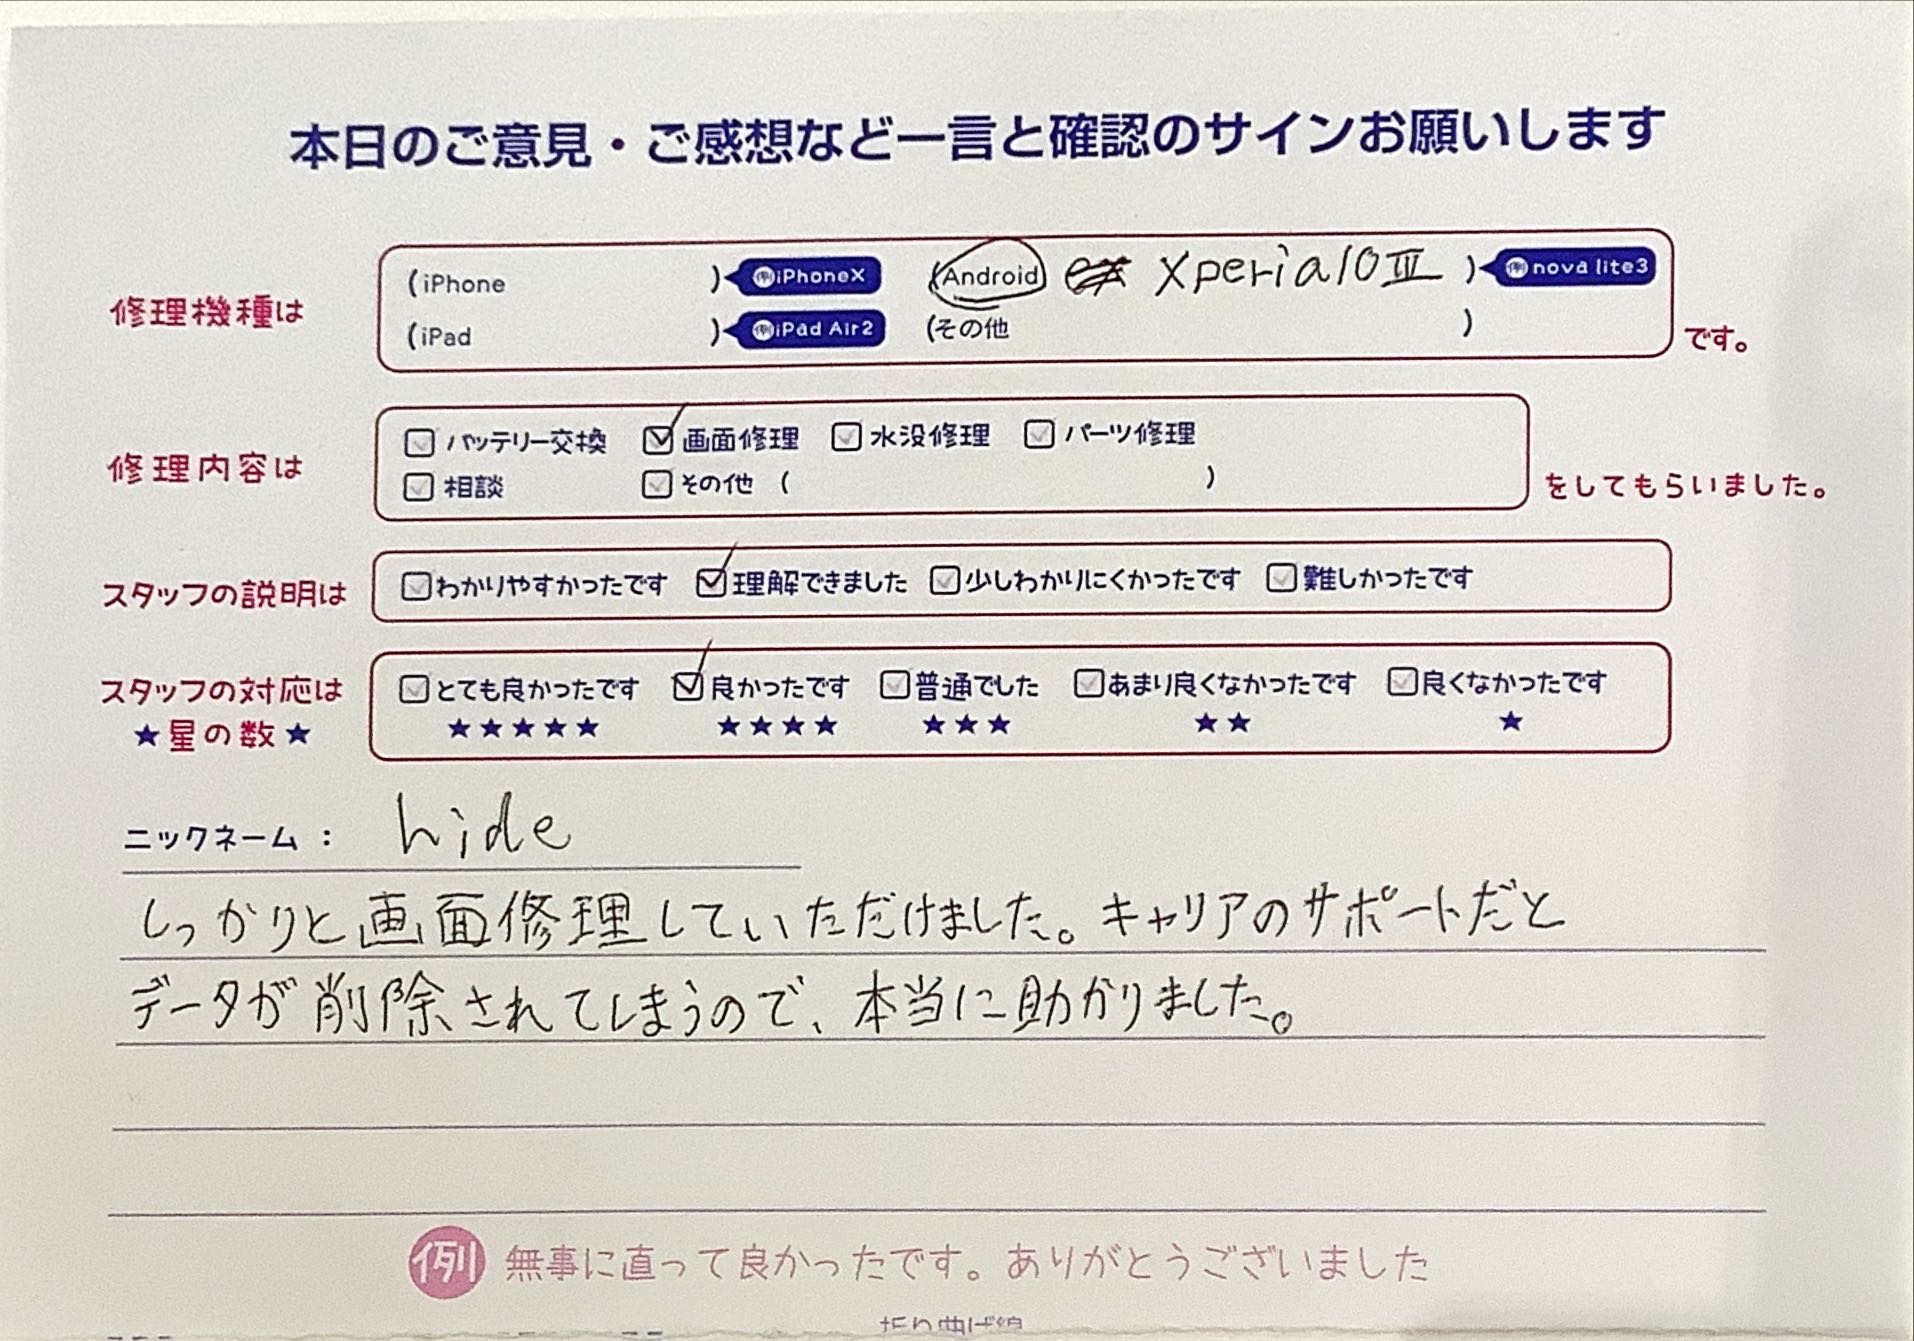 本日のご意見・ご感想など一言と確認のサインお願いします
修理機種は
(iPhone ) 例iPhoneX (Android Xperia10Ⅲ ) 例nova lite3
(iPad ) 例iPad Air2 (その他 )
です。
修理内容は
バッテリー交換 画面修理 水没修理 パーツ修理
相談 その他 ( )
をしてもらいました。
スタッフの説明は
わかりやすかったです 理解できました 少しわかりにくかったです 難しかったです
スタッフの対応は
★星の数★
とても良かったです 良かったです 普通でした あまり良くなかったです 良くなかったです
★★★★★ ★★★★ ★★★ ★★ ★
ニックネーム: hide
しっかりと画面修理していただけました。キャリアのサポートだと
データが削除されてしまうので、本当に助かりました。
例 無事に直って良かったです。ありがとうございました
折り曲げ線